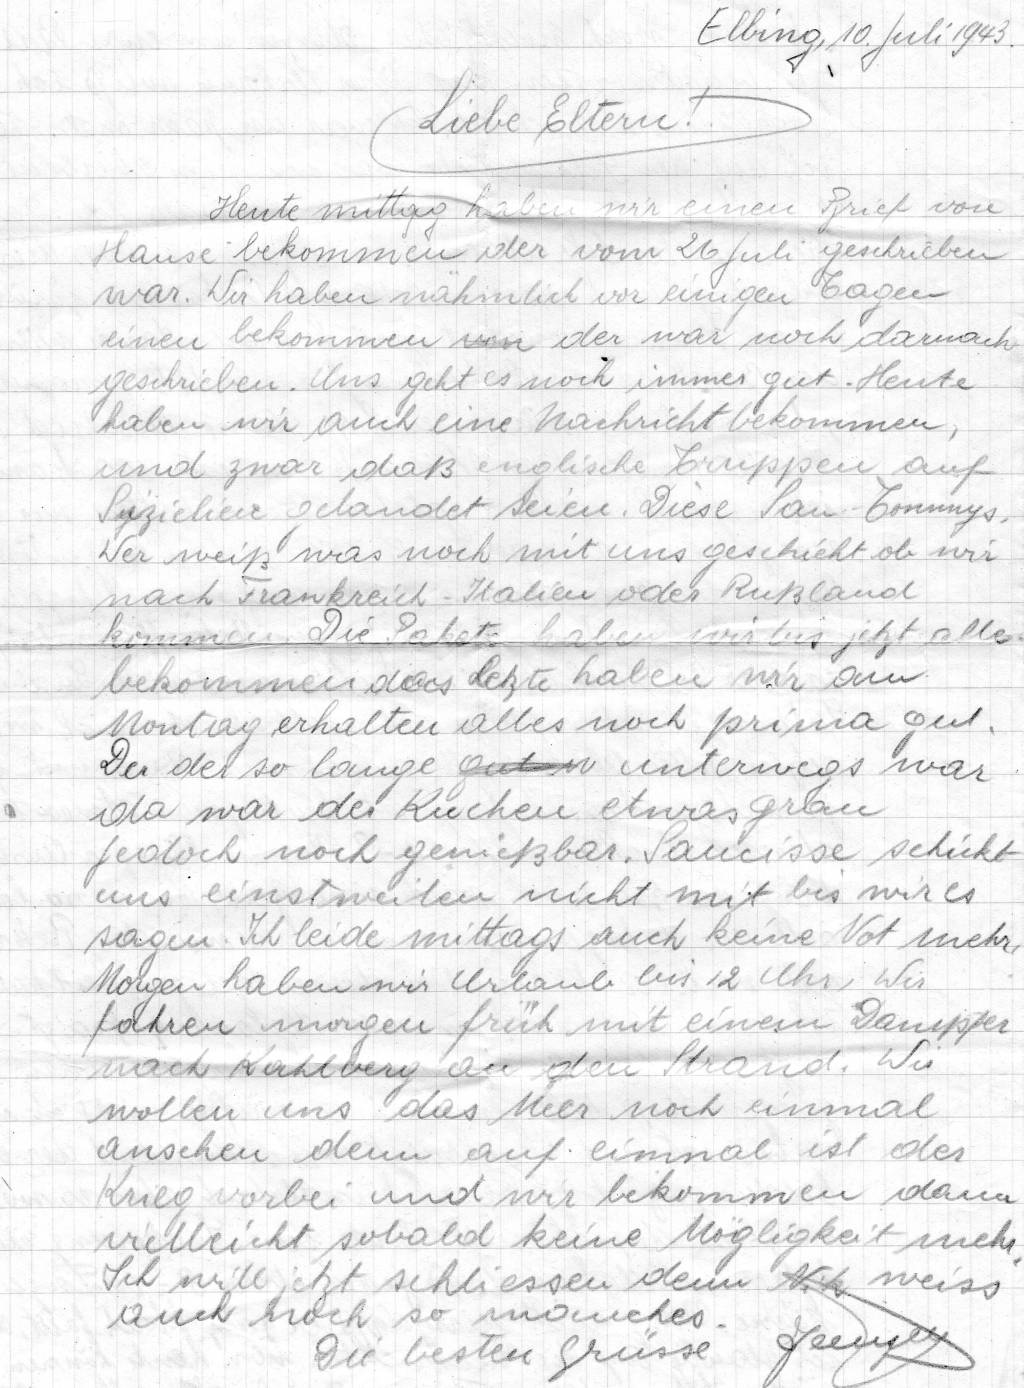 Elbing, 10. Juli 1943.
Liebe Eltern!
Heute mittag haben wir einen Brief von
Hause bekommen der vom 26 Juli geschrieben
war. Wir haben nähmlich vor einigen Tagen
einen bekommen von der war noch darnach
geschrieben. Uns geht es noch immer gut. Heute
haben wir auch eine Nachricht bekommen,
und zwar daß englische Truppen auf
Sizielien gelandet seien. Diese Sau-Tommys.
Wer weiß was noch mit uns geschieht ob wir
nach Frankreich - Italien oder Rußland
kommen. Die Pakete haben wir bis jetzt alle
bekommen das letzte haben wir am
Montag erhalten alles noch prima gut.
Der der so lange unterwegs war
da war der Kuchen etwas grau
jedoch noch genießbar. Saucisse schickt
uns einstweilen nicht mit bis wir es
sagen. Ich leide mittags auch keine Not mehr,
Morgen haben wir Urlaub bis 12 Uhr, Wir
fahren morgen früh mit einem Dampfer
nach Kahlberg an den Strand. Wir
wollen uns das Meer noch einmal
ansehen denn auf einmal ist der
Krieg vorbei und wir bekommen dann
vielleicht sobald keine Mögligkeit mehr.
Ich will jetzt schliessen denn weiss
auch noch so manches.
Die besten Grüsse